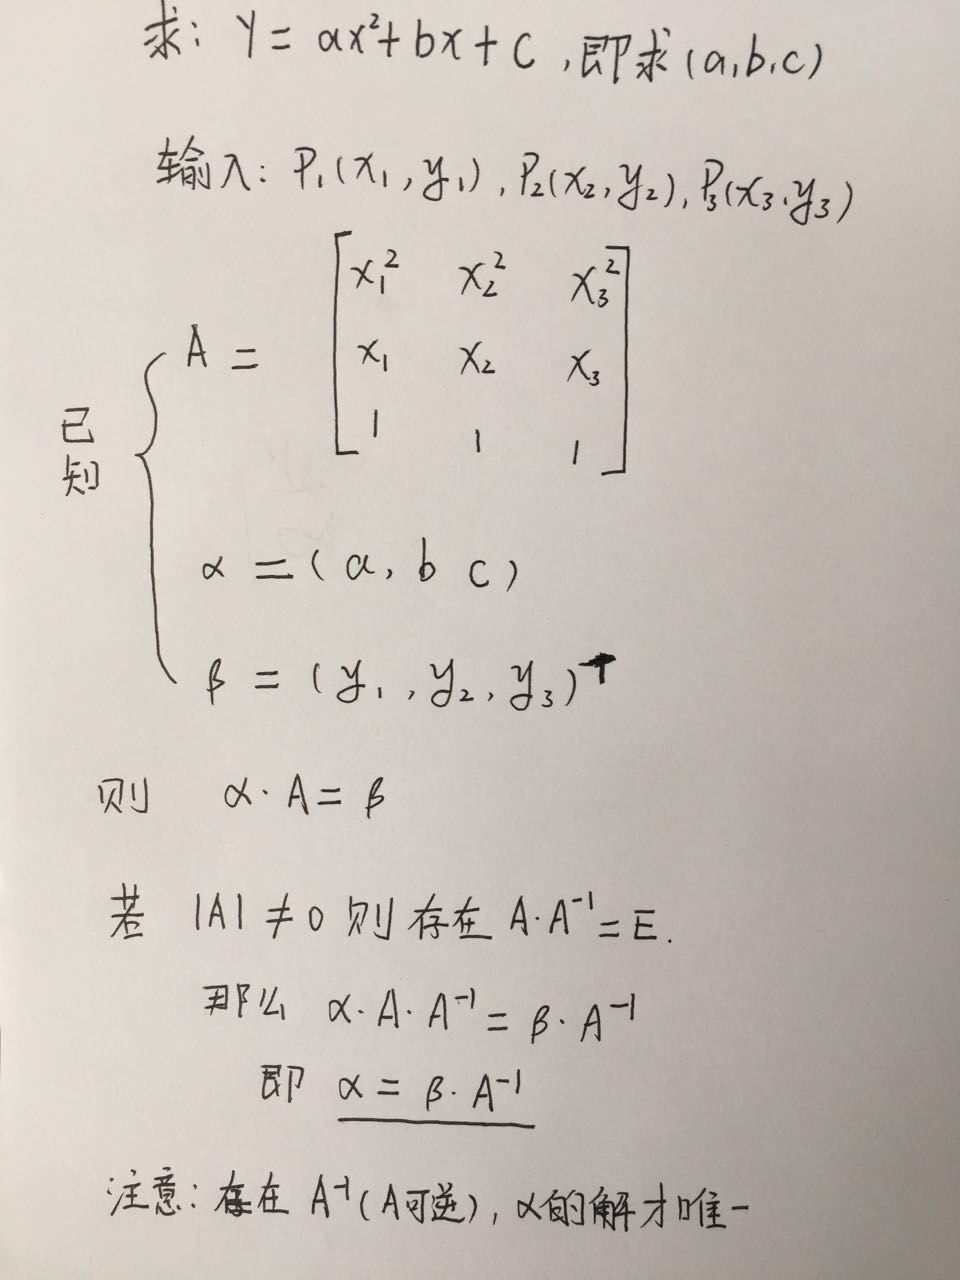 求: Y = ax²+bx+c ,即求(a,b,c)
输入: P₁(x₁,y₁), P₂(x₂,y₂), P₃(x₃,y₃)
x₁² x₂² x₃²
已知 { A = [ x₁ x₂ x₃ ]
1 1 1
α = (a, b c)
β = (y₁, y₂, y₃)ᵀ
则 α·A = β
若 |A| ≠ 0 则存在 A·A⁻¹ = E.
那么 α·A·A⁻¹ = β·A⁻¹
即 α = β·A⁻¹
注意: 存在 A⁻¹(A可逆), α的解才唯一